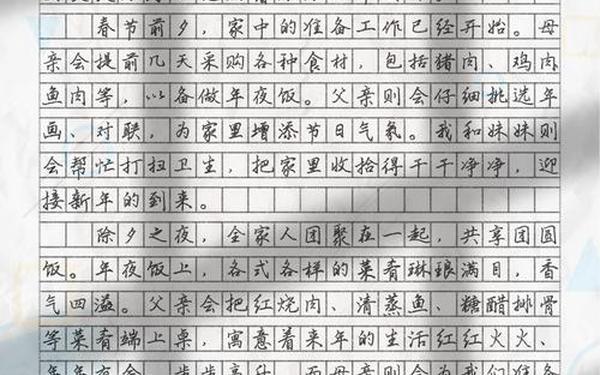 春节前夕，家中的准备工作已经开始。母
亲会提前几天采购各种食材，包括猪肉、鸡肉
鱼肉等，以备做年夜饭。父亲则会仔细挑选年
画、对联，为家里增添节日气氛。我和妹妹则
会帮忙打扫卫生，把家里收拾得干干净净，迎
接新年的到来。
除夕之夜，全家人团聚在一起，共享团圆
饭。年夜饭上，各式各样的菜肴琳琅满目，香
气四溢。父亲会把红烧肉、清蒸鱼、糖醋排骨
等菜肴端上桌，寓意着来年的生活红红火火、
年年有余、步步高升。而母亲则会为我们准备